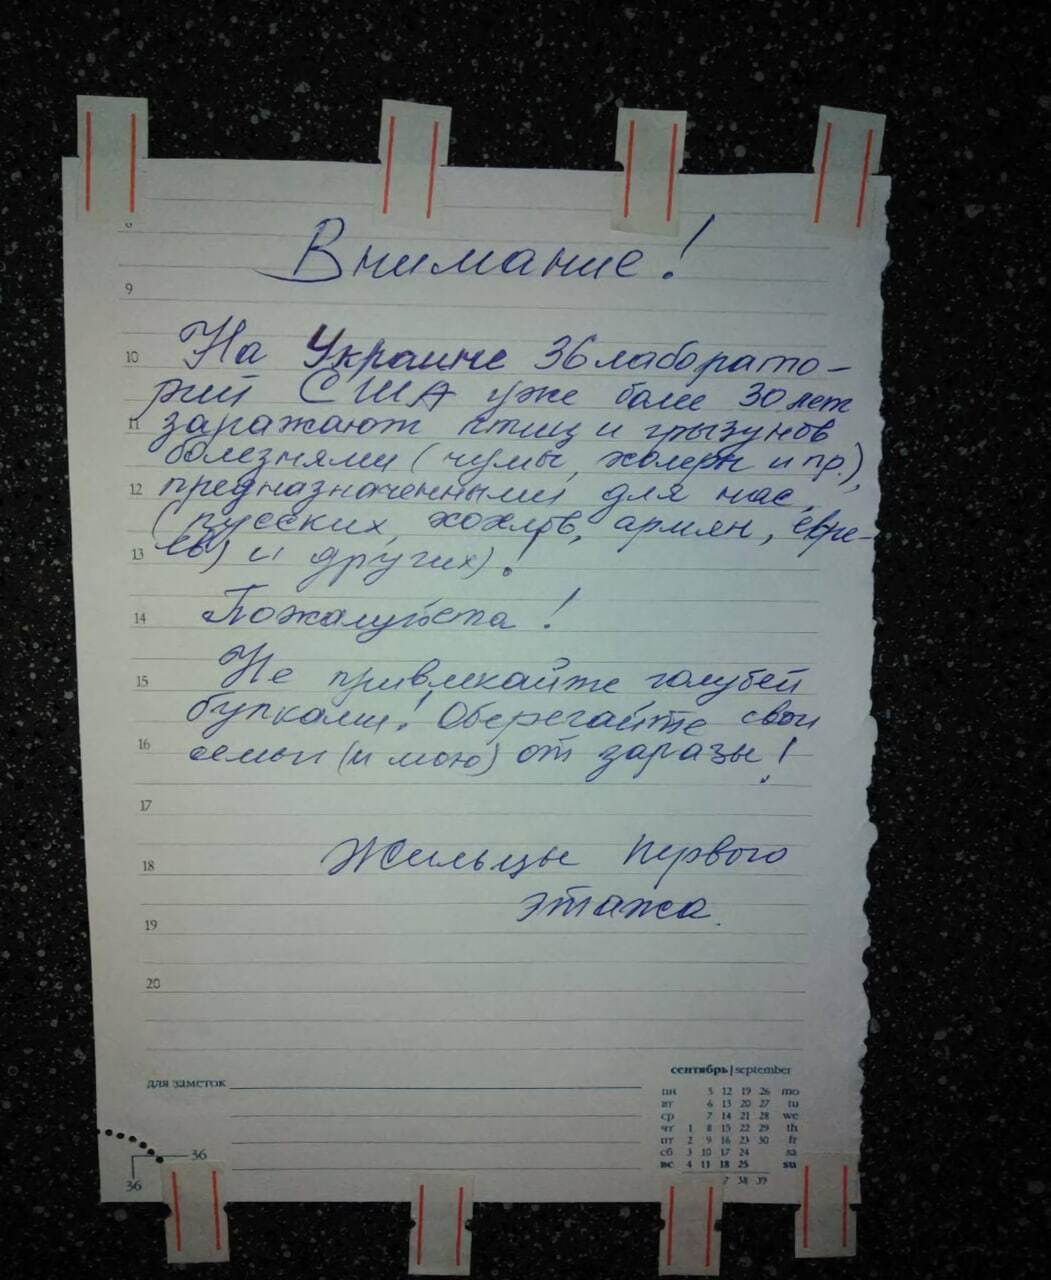 8
Внимание!
9
На Украине 36 лаборато-
10
рий США уже более 30 лет
11
заражают птиц и грызунов
болезнями (чумы, холеры и пр.),
12
предназначенными для нас,
(русских, хохлов, армян, евре-
13
ев) и других)!
14
Пожалуйста!
Не привлекайте голубей
15
булками! Оберегайте свои
16
семьи (и мою) от заразы!
17
Жильцы первого
18
этажа.
19
20
для заметок
сентябрь | september
пн 5 12 19 26 mo
вт 6 13 20 27 tu
ср 7 14 21 28 we
чт 1 8 15 22 29 th
пт 2 9 16 23 30 fr
сб 3 10 17 24 sa
вс 4 11 18 25 su
7 38 39
36
36